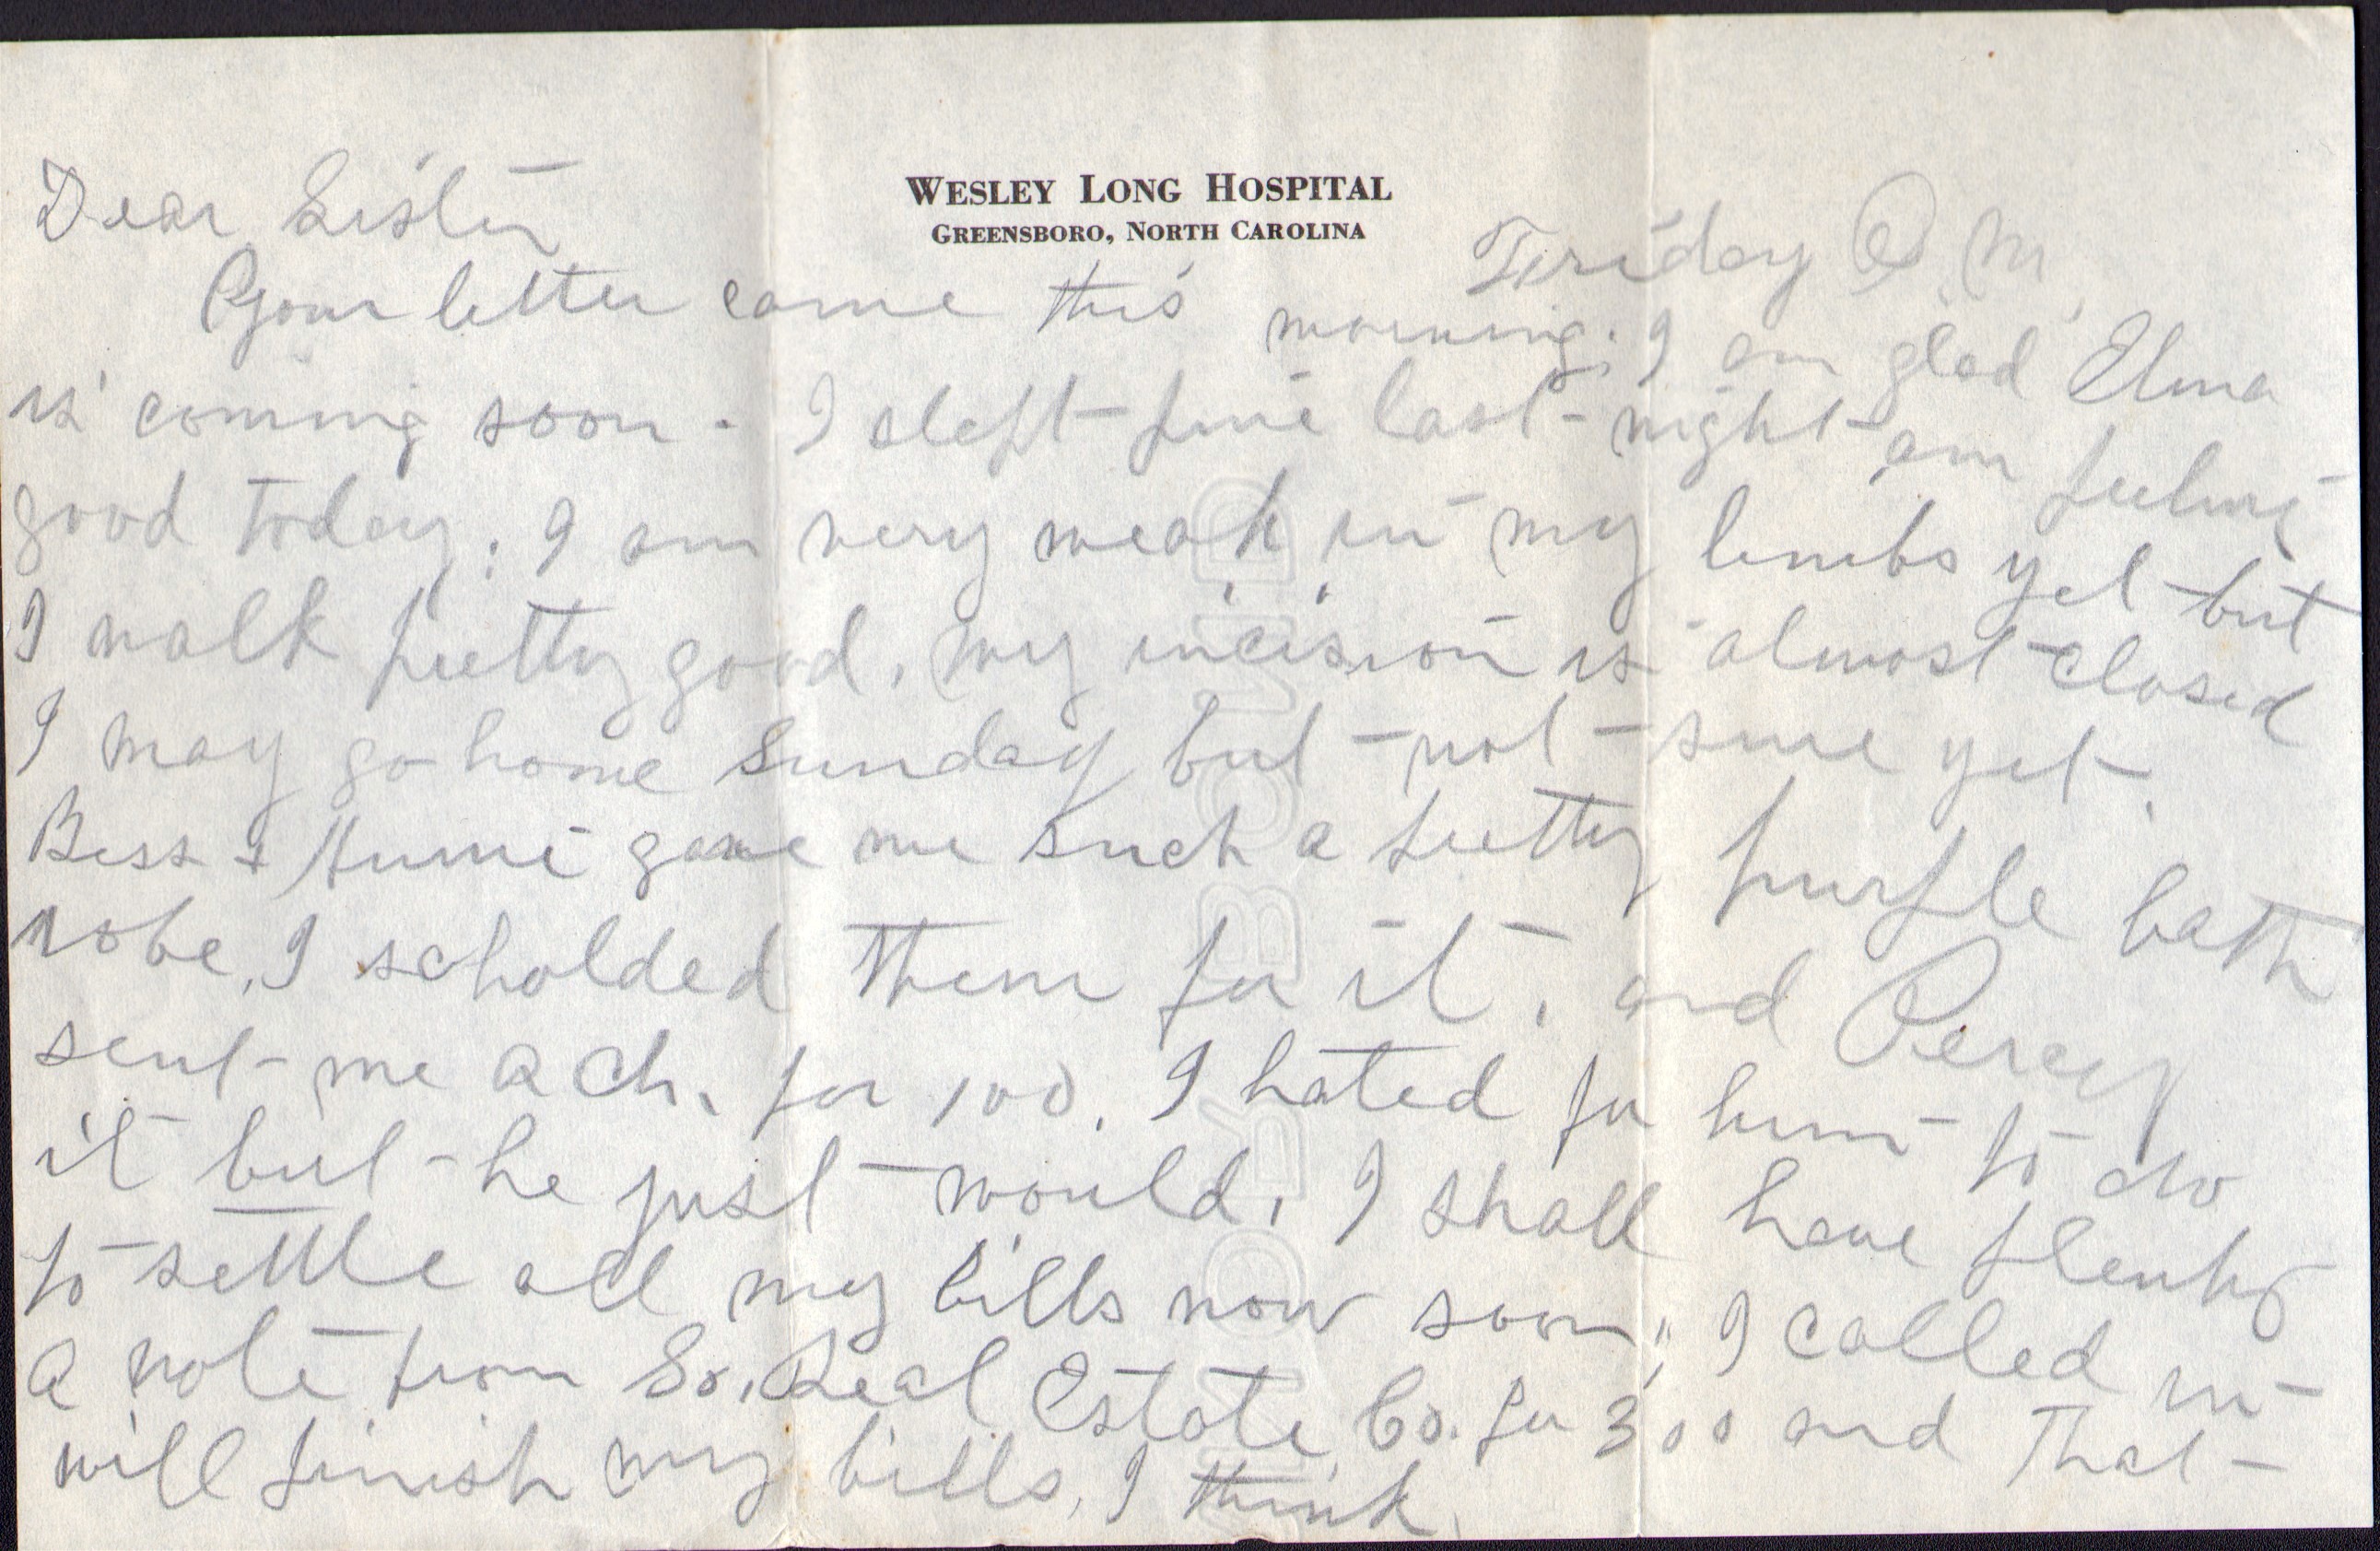 WESLEY LONG HOSPITAL
GREENSBORO, NORTH CAROLINA
Friday P.M.
Dear Sister
Your letter came this morning. I am glad Elma
is coming soon. I slept fine last night am feeling
good today. I am very weak in my limbs yet but
I walk pretty good. My incision is almost closed
I may go home Sunday but not sure yet.
Bess + gave me such a pretty purple bath
robe, I scholded them for it, and Percy
sent me a ch. for 100. I hated for him to do
it but he just would. I shall have plenty
to settle all my bills now soon, I called in
a note from So. Real Estate Co. for 300 and that
will finish my bills, I think.